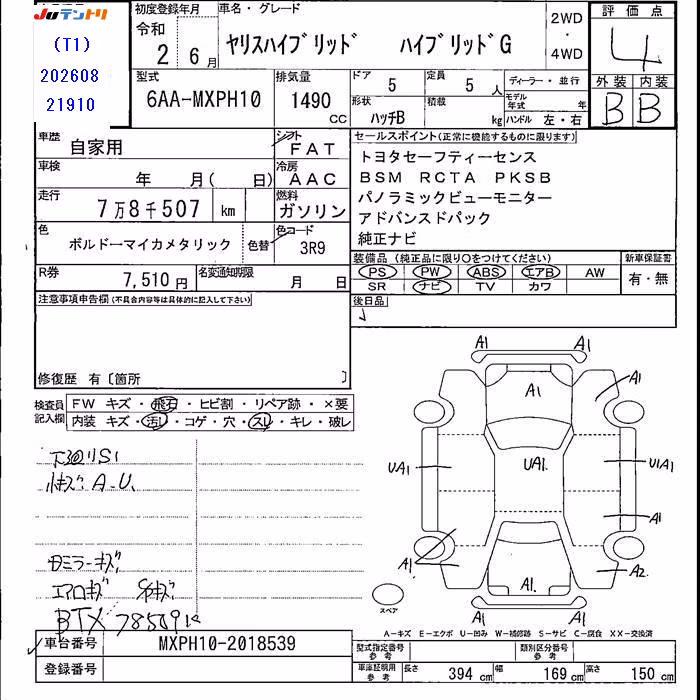 JUテントリ
(T1)
202608
21910
初度登録年月
令和
2 6月
車名・グレード
ヤリスハイブリッド ハイブリッドG
2WD
・
4WD
評価点
4
型式
6AA-MXPH10
排気量
1490
CC
ドア
5
定員
5 人
形状
ハッチB
積載
kg
ディーラー・並行
モデル年式 年
ハンドル 左・右
外装 内装
B B
車歴
自家用
シフト
FAT
車検
年 月( 日)
冷房
AAC
走行
7万8千507 km
燃料
ガソリン
色
ボルドーマイカメタリック
色替
色コード
3R9
R券
7,510円
名変通知期限
月 日
セールスポイント(正常に機能するものに限ります)
トヨタセーフティーセンス
BSM RCTA PKSB
パノラミックビューモニター
アドバンスドパック
純正ナビ
装備品 (純正品に限り○をつけてください)
PS PW ABS エアB AW
SR ナビ TV カワ
新車保証書
有・無
後日品
注意事項申告欄(不具合内容等は具体的に記入して下さい)
修復歴 有〔箇所 〕
検査員記入欄
FW キズ・飛石・ヒビ割・リペア跡・×要
内装 キズ・汚レ・コゲ・穴・スレ・キレ・破レ
下廻りS1
小キズ A-U.
ミラーキズ
エアロキズ
BTX 78509K
A1 A1
A1
A1
UA1
UA1.
U1A1
A1
A1
A2
A1.
A1 A1
スペア
A-キズ E-エクボ U-凹み W-補修跡 S-サビ C-腐食 XX-交換済
車台番号
MXPH10-2018539
登録番号
型式指定番号
参考
類別区分番号
参考
車庫証明用
参考
長さ 394 cm 幅 169 cm 高さ 150 cm